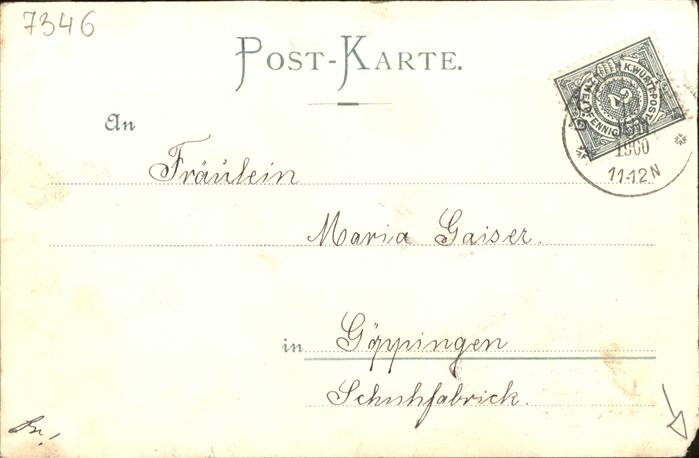 7346
POST-KARTE.
An
Fräulein
Maria Gaiser.
in Göppingen
Schuhfabrick.
K. WÜRTT. POST
ZWEI
2
PFENNIG
1900
11-12 N